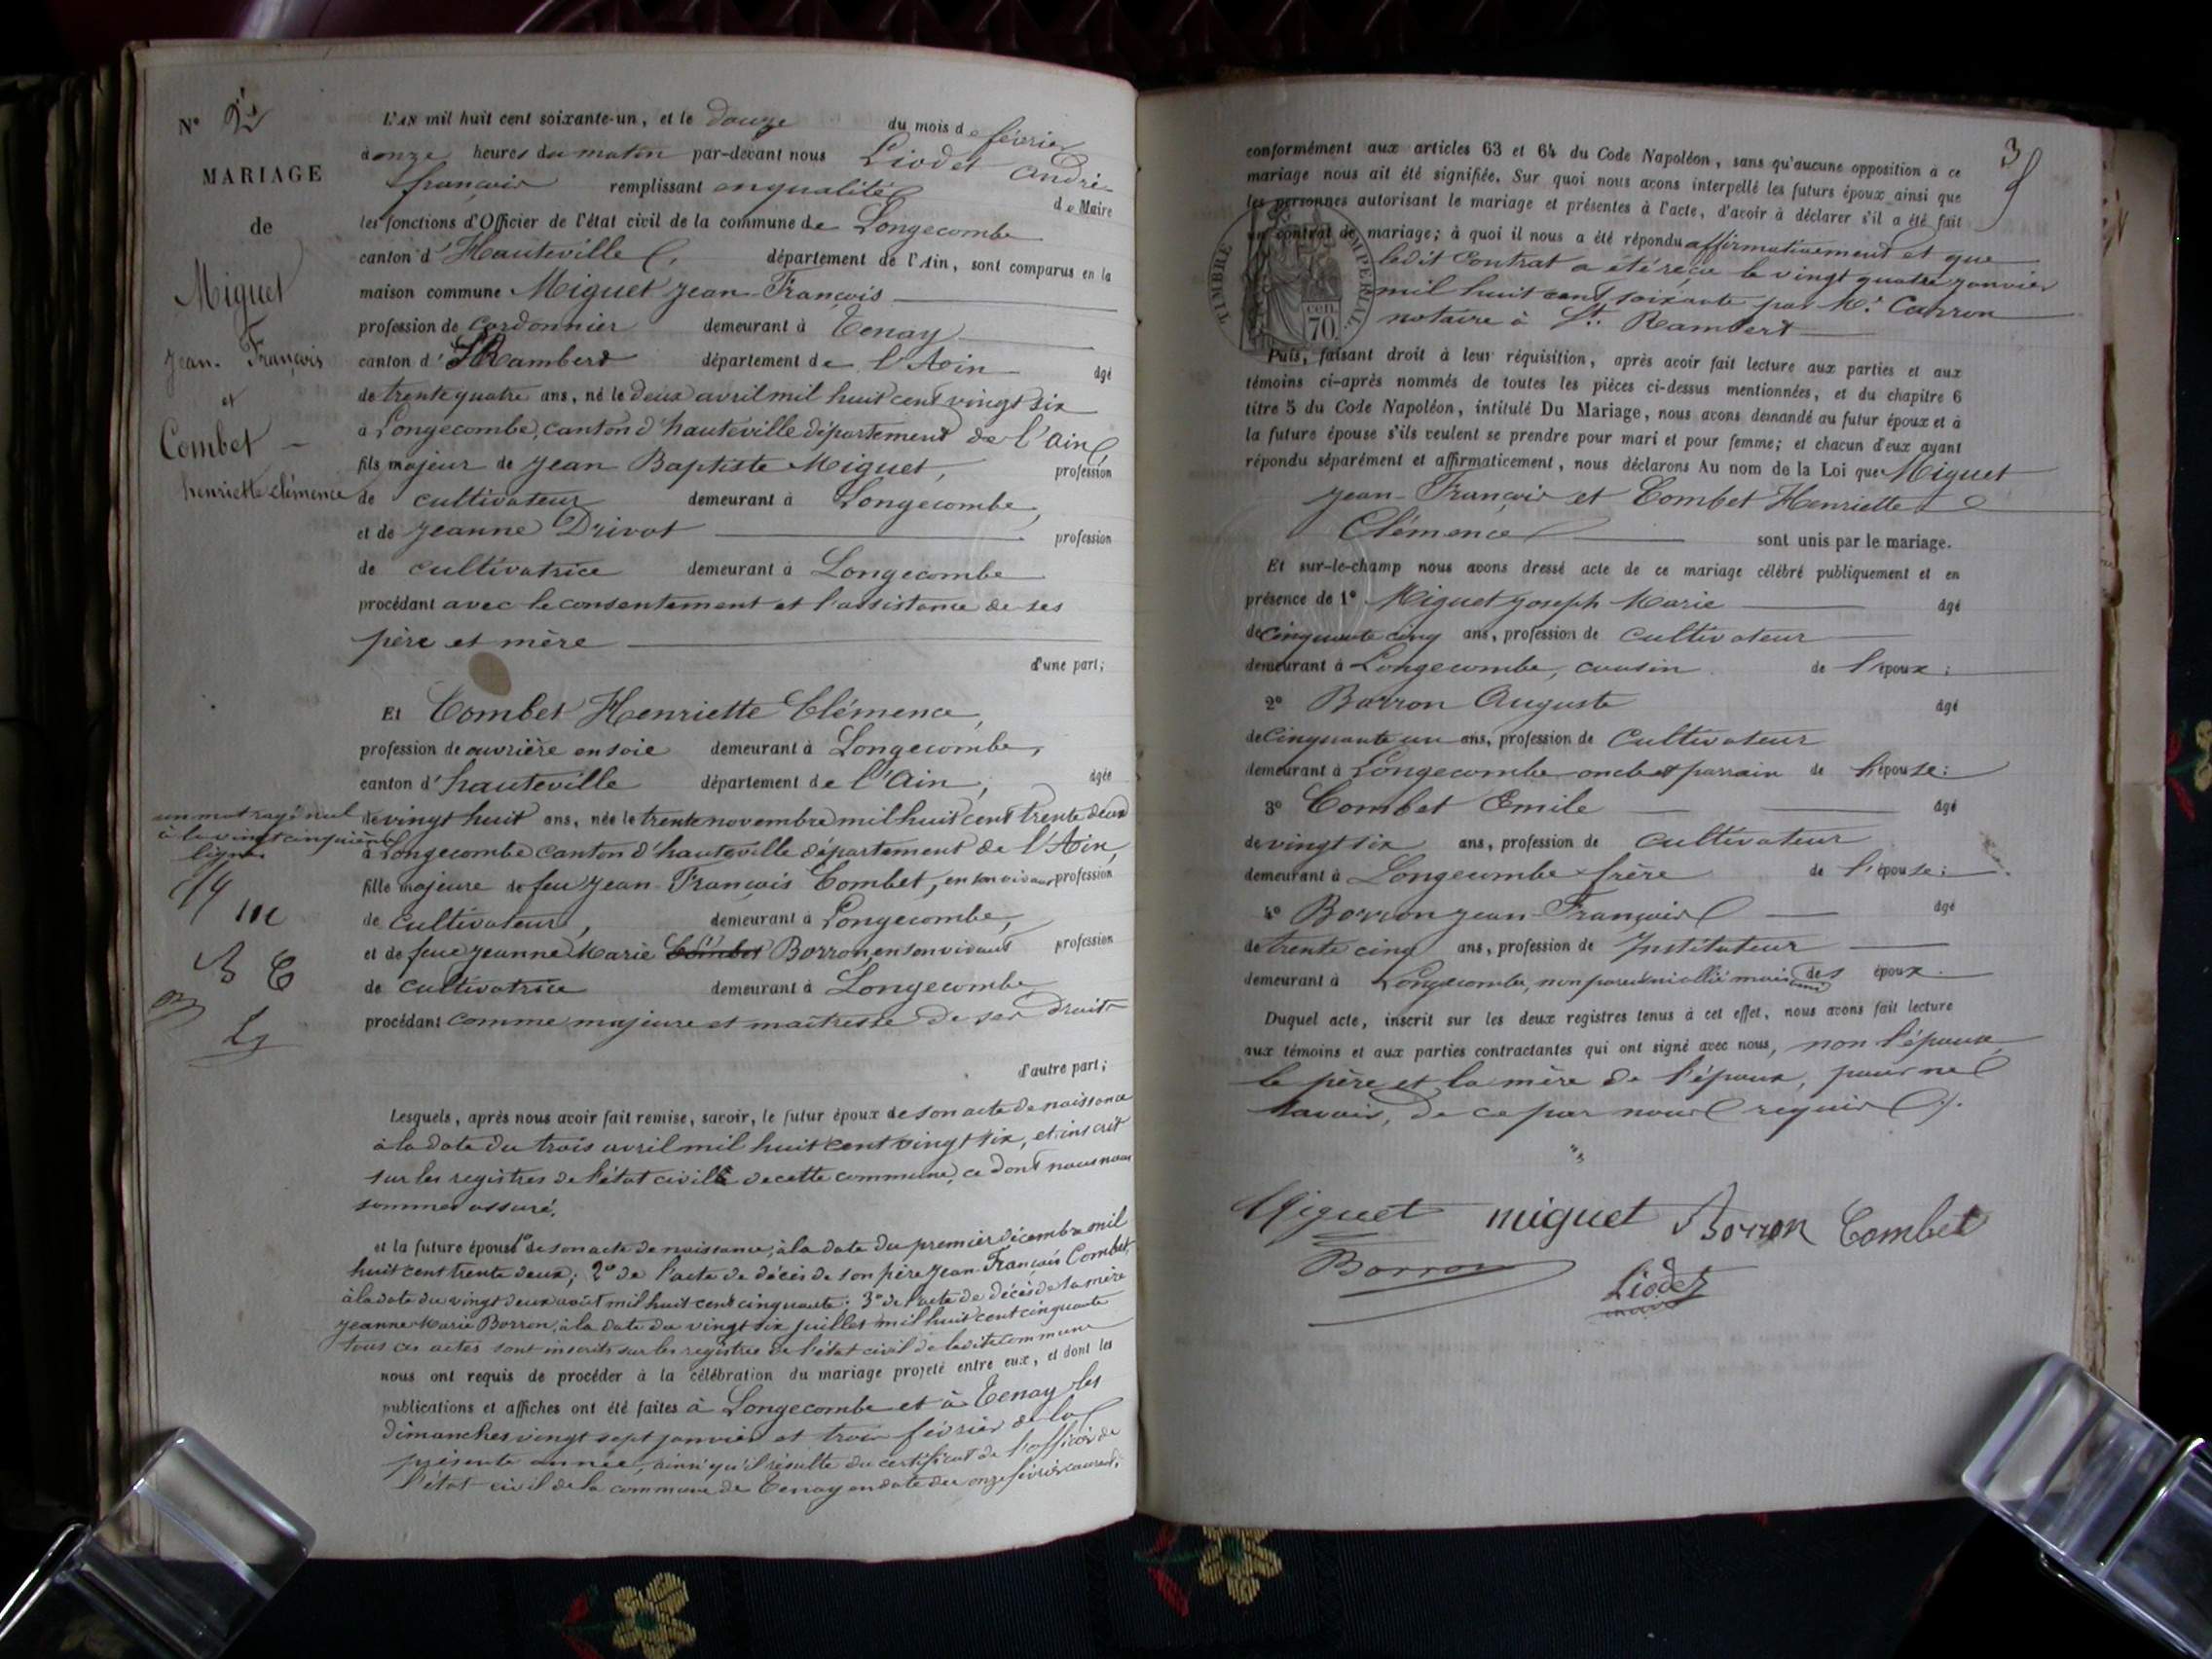 N° 2
MARIAGE
de
Miguet
Jean-François
et
Combet
henriette clémence
L'AN mil huit cent soixante-un, et le douze du mois de février
à onze heures du matin par-devant nous Liodet André
françois remplissant en qualité de Maire
les fonctions d'Officier de l'état civil de la commune de Longecombe
canton d'Hauteville, département de l'Ain, sont comparus en la
maison commune Miguet Jean-François
profession de cordonnier demeurant à Tenay
canton d' St Rambert département de l'Ain âgé
de trente quatre ans, né le deux avril mil huit cent vingt six
à Longecombe, canton d'hauteville département de l'Ain
fils majeur de Jean Baptiste Miguet, profession
de cultivateur demeurant à Longecombe,
et de Jeanne Drivot profession
de cultivatrice demeurant à Longecombe
procédant avec le consentement et l'assistance de ses
père et mère
d'une part;
Et Combet Henriette Clémence,
profession de ouvrière en soie demeurant à Longecombe,
canton d'hauteville département de l'Ain, âgée
de vingt huit ans, née le trente novembre mil huit cent trente deux
à Longecombe canton d'hauteville département de l'Ain,
fille majeure de feu Jean-François Combet, en son vivant profession
de cultivateur, demeurant à Longecombe,
et de feue Jeanne Marie Combet Borron, en son vivant profession
de cultivatrice demeurant à Longecombe
procédant comme majeure et maîtresse de ses droits
d'autre part;
un mot rayé nul
à la vingt cinquième
ligne
m
B C
B
Lj
Lesquels, après nous avoir fait remise, savoir, le futur époux de son acte de naissance
à la date du trois avril mil huit cent vingt six, et inscrit
sur les registres de l'état civil de cette commune, ce dont nous nous
sommes assuré.
et la future épouse 1° de son acte de naissance, à la date du premier décembre mil
huit cent trente deux; 2° de l'acte de décès de son père Jean-François Combet,
à la date du vingt deux août mil huit cent cinquante; 3° de l'acte de décès de sa mère
Jeanne Marie Borron, à la date du vingt six juillet mil huit cent cinquante
tous ces actes sont inscrits sur les registres de l'état civil de ladite commune
nous ont requis de procéder à la célébration du mariage projeté entre eux, et dont les
publications et affiches ont été faites à Longecombe et à Tenay les
dimanches vingt sept janvier et trois février de la
présente année, ainsi qu'il résulte du certificat de l'officier de
l'état civil de la commune de Tenay en date du onze février courant;
3
conformément aux articles 63 et 64 du Code Napoléon, sans qu'aucune opposition à ce
mariage nous ait été signifiée. Sur quoi nous avons interpellé les futurs époux ainsi que
les personnes autorisant le mariage et présentes à l'acte, d'avoir à déclarer s'il a été fait
un contrat de mariage; à quoi il nous a été répondu affirmativement et que
ledit Contrat a été reçu le vingt quatre janvier
mil huit cent soixante par Me Carron
notaire à St. Rambert
TIMBRE IMPERIAL
cen.
70.
Puis, faisant droit à leur réquisition, après avoir fait lecture aux parties et aux
témoins ci-après nommés de toutes les pièces ci-dessus mentionnées, et du chapitre 6
titre 5 du Code Napoléon, intitulé Du Mariage, nous avons demandé au futur époux et à
la future épouse s'ils veulent se prendre pour mari et pour femme; et chacun d'eux ayant
répondu séparément et affirmativement, nous déclarons Au nom de la Loi que Miguet
Jean-François et Combet Henriette
Clémence sont unis par le mariage.
Et sur-le-champ nous avons dressé acte de ce mariage célébré publiquement et en
présence de 1° Miguet Joseph Marie âgé
de cinquante cinq ans, profession de cultivateur
demeurant à Longecombe, cousin de l'époux;
2° Borron Auguste âgé
de cinquante un ans, profession de Cultivateur
demeurant à Longecombe oncle et parrain de l'épouse;
3° Combet Emile âgé
de vingt six ans, profession de cultivateur
demeurant à Longecombe frère de l'épouse;
4° Borron Jean-François âgé
de trente cinq ans, profession de Instituteur
demeurant à Longecombe, non parent ni allié mais ami des époux.
Duquel acte, inscrit sur les deux registres tenus à cet effet, nous avons fait lecture
aux témoins et aux parties contractantes qui ont signé avec nous, non l'épouse,
le père et la mère de l'époux, pour ne
savoir, de ce par nous requis.
Miguet miguet Borron Combet
Borron
Liodet
maire